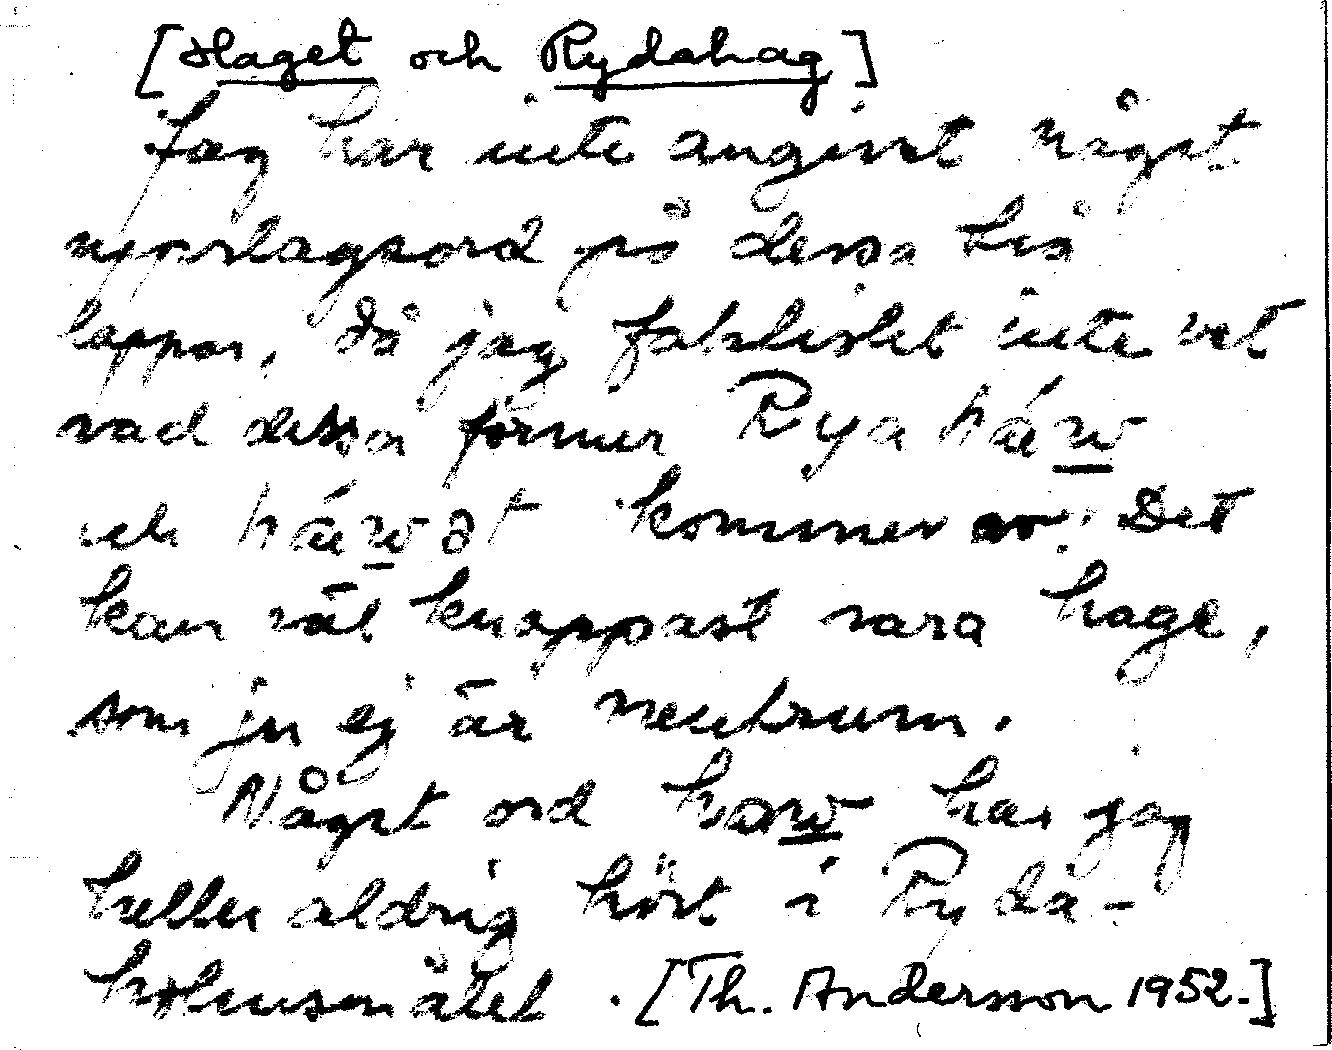 [Haget och Rydahag]
Jag har inte angivit något
uppslagsord på dessa två
lappar, då jag faktiskt inte vet
vad dessa former Rya
och kommer av. Det
kan väl knappast vara hage,
som ju ej är neutrum.
Något ord har jag
heller aldrig hört i Ryda-
holmsmålet. [Th. Andersson 1952.]